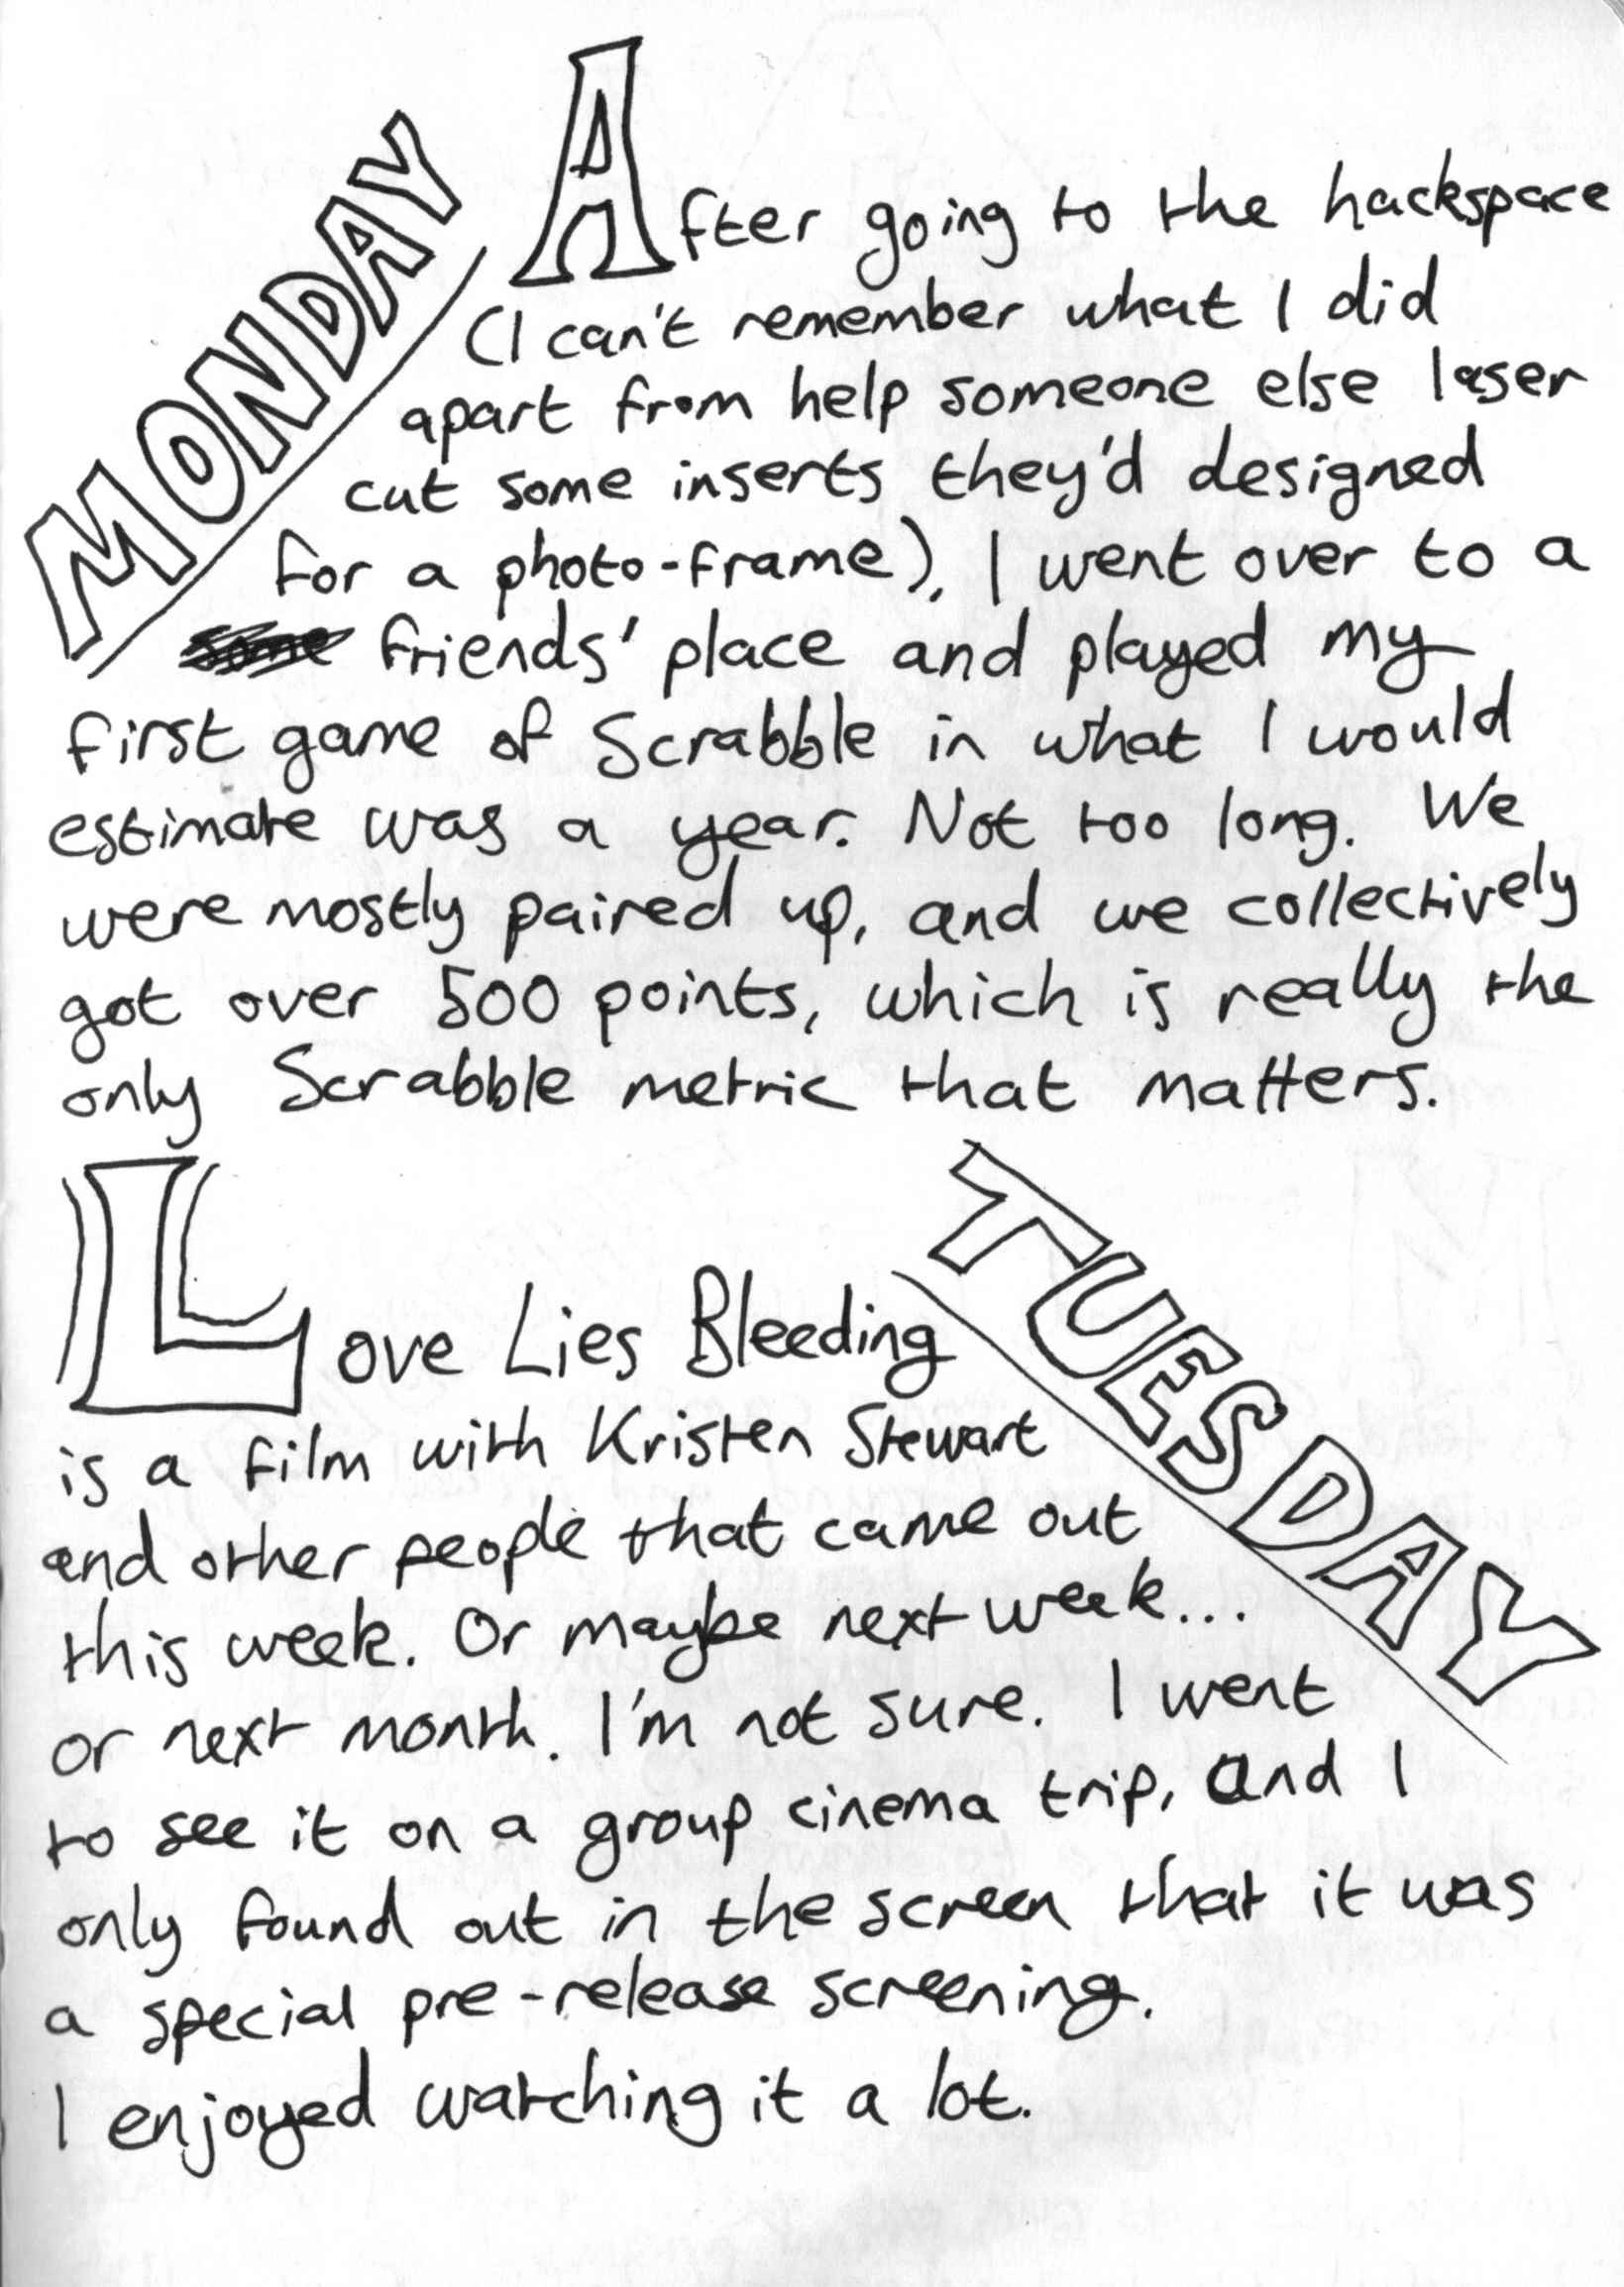 MONDAY
After going to the hackspace
(I can't remember what I did
apart from help someone else laser
cut some inserts they'd designed
for a photo-frame), I went over to a
some friends' place and played my
first game of Scrabble in what I would
estimate was a year. Not too long. We
were mostly paired up, and we collectively
got over 500 points, which is really the
only Scrabble metric that matters.
TUESDAY
Love Lies Bleeding
is a film with Kristen Stewart
and other people that came out
this week. Or maybe next week...
or next month. I'm not sure. I went
to see it on a group cinema trip, and I
only found out in the screen that it was
a special pre-release screening.
I enjoyed watching it a lot.